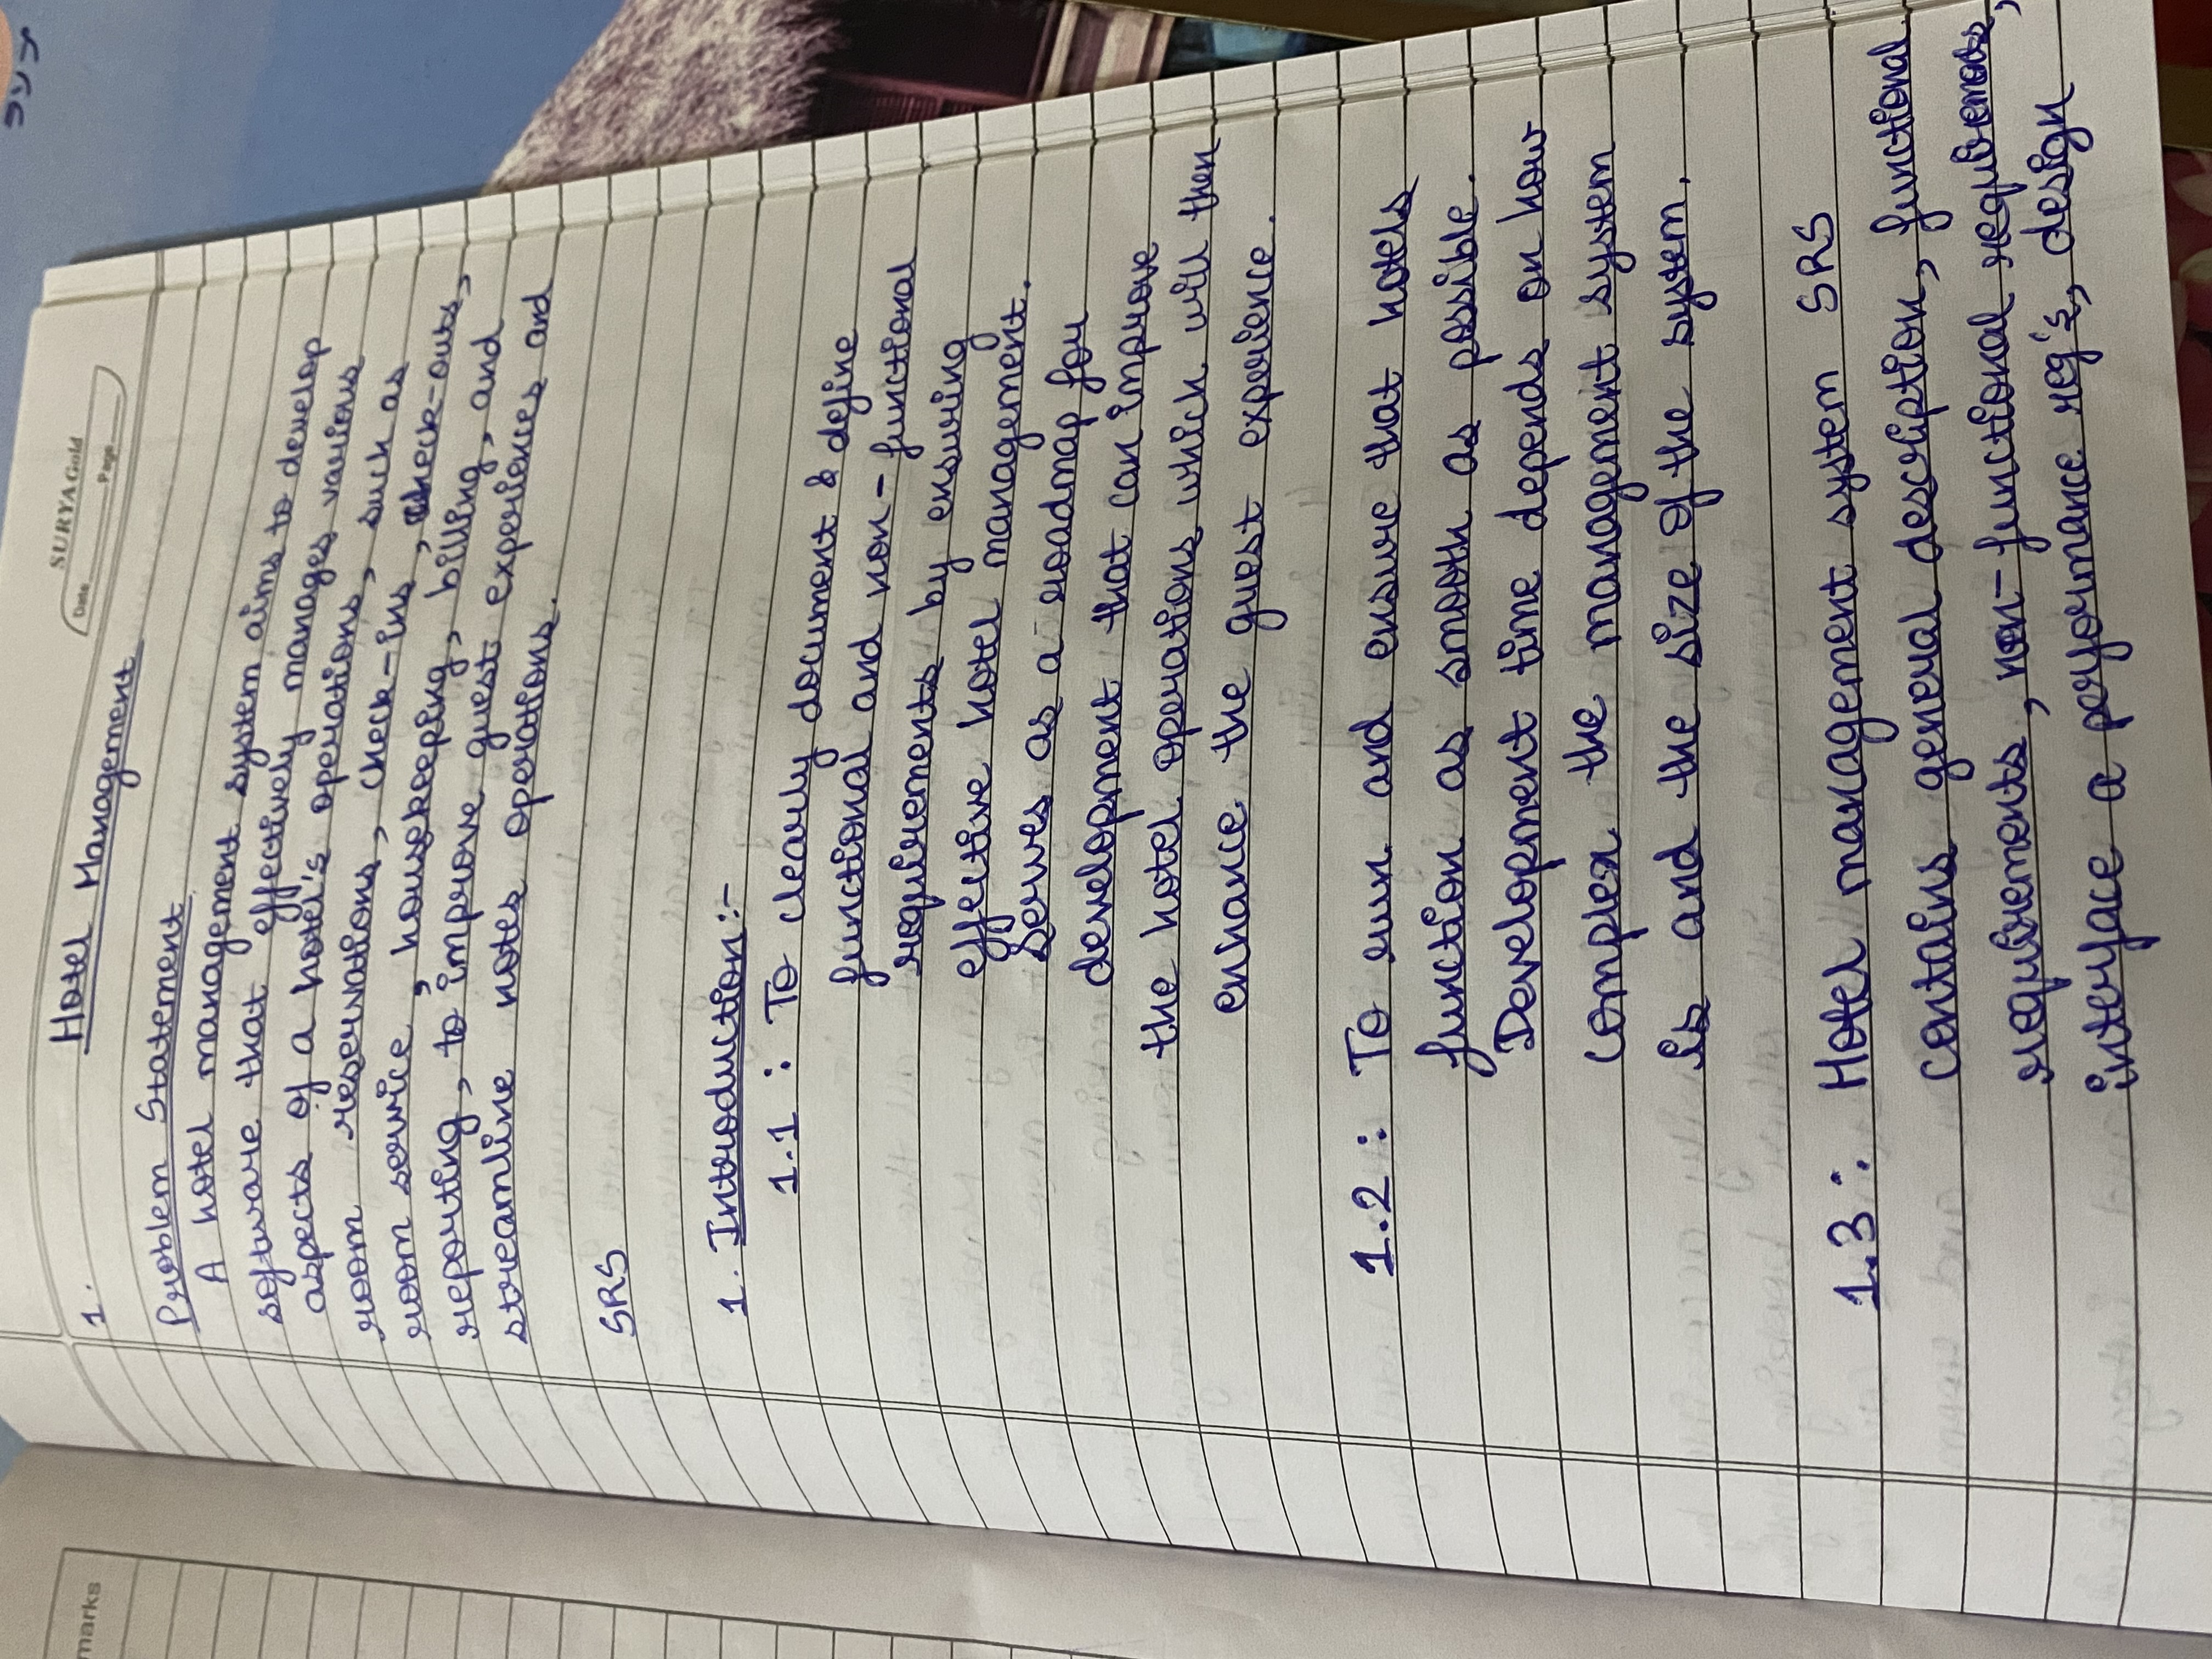 marks
ラソプ
SURYA Gold
Date
Page
1.
Hotel Management
Problem Statement
A hotel management system aims to develop
software that effectively manages various
aspects of a hotel's operations, such as
room reservations, check-ins, check-outs,
room service, housekeeping, billing, and
reporting, to improve guest experiences and
streamline hotels operations.
SRS
1. Introduction:-
1.1 : To clearly document & define
functional and non-functional
requirements by ensuring
effective hotel management.
Serves as a roadmap for
development that can improve
the hotel operations which will then
enhance the guest experience.
1.2 : To run and ensure that hotels
function as smooth as possible.
Development time depends on how
complex the management system
is and the size of the system.
1.3 : Hotel management system SRS
contains general description, functional
requirements, non-functional requirements,
interface a performance req's, design